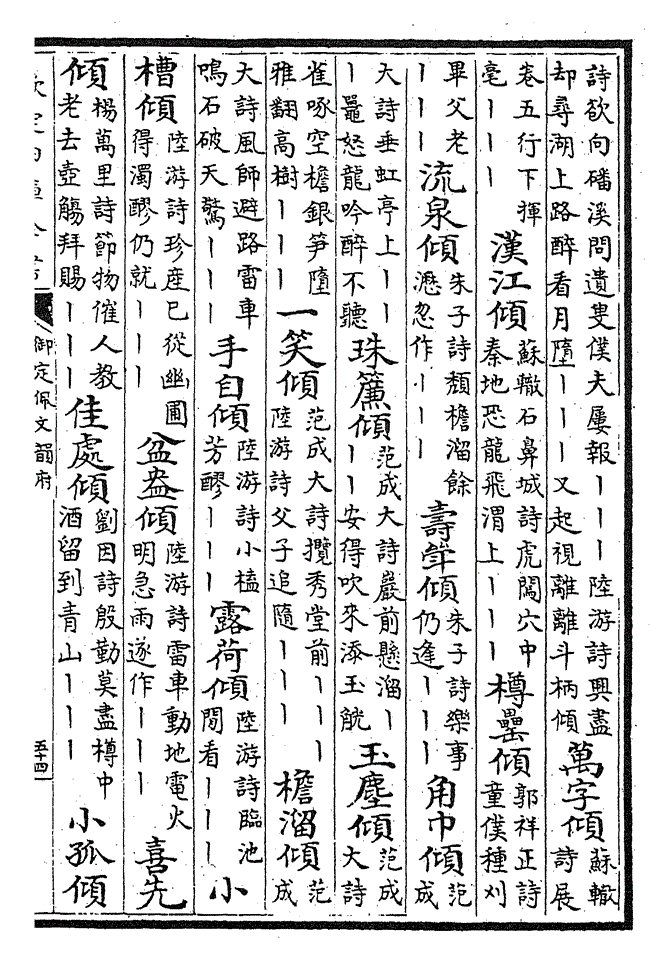 詩欲向磻溪問遺叟僕夫屢報｜｜｜陸游詩興盡却尋湖上路醉看月墮｜｜｜又起視離離斗柄傾 萬字傾 蘇轍詩展
卷五行下揮毫｜｜｜ 漢江傾 蘇轍石鼻城詩虎闘穴中秦地恐龍飛渭上｜｜｜ 樽罍傾 郭祥正詩童僕種刈
畢父老｜｜｜ 流泉傾 朱子詩頽檐溜餘瀝忽作｜｜｜ 壽斝傾 朱子詩樂事仍逢｜｜｜ 角巾傾 范成
大詩垂虹亭上｜｜｜鼉怒龍吟醉不聽 珠簾傾 范成大詩巖前懸溜｜｜｜安得吹來添玉觥 玉塵傾 范成大詩
雀啄空檐銀筍墮雅翻高樹｜｜｜ 一笑傾 范成大詩攬秀堂前｜｜｜陸游詩父子追隨｜｜｜ 檐溜傾 范成
大詩風師避路雷車鳴石破天驚｜｜｜ 手自傾 陸游詩小榼芳醪｜｜｜ 露荷傾 陸游詩臨池閒看｜｜｜ 小
槽傾 陸游詩珍産已從幽圃得濁醪仍就｜｜｜ 盆盎傾 陸游詩雷車動地電火明急雨遂作｜｜｜ 喜先
傾 楊萬里詩節物催人教老去壺觴拜賜｜｜｜ 佳處傾 劉因詩殷勤莫盡樽中酒留到青山｜｜｜ 小孤傾
欽定四庫全書 御定佩文韻府 五十四